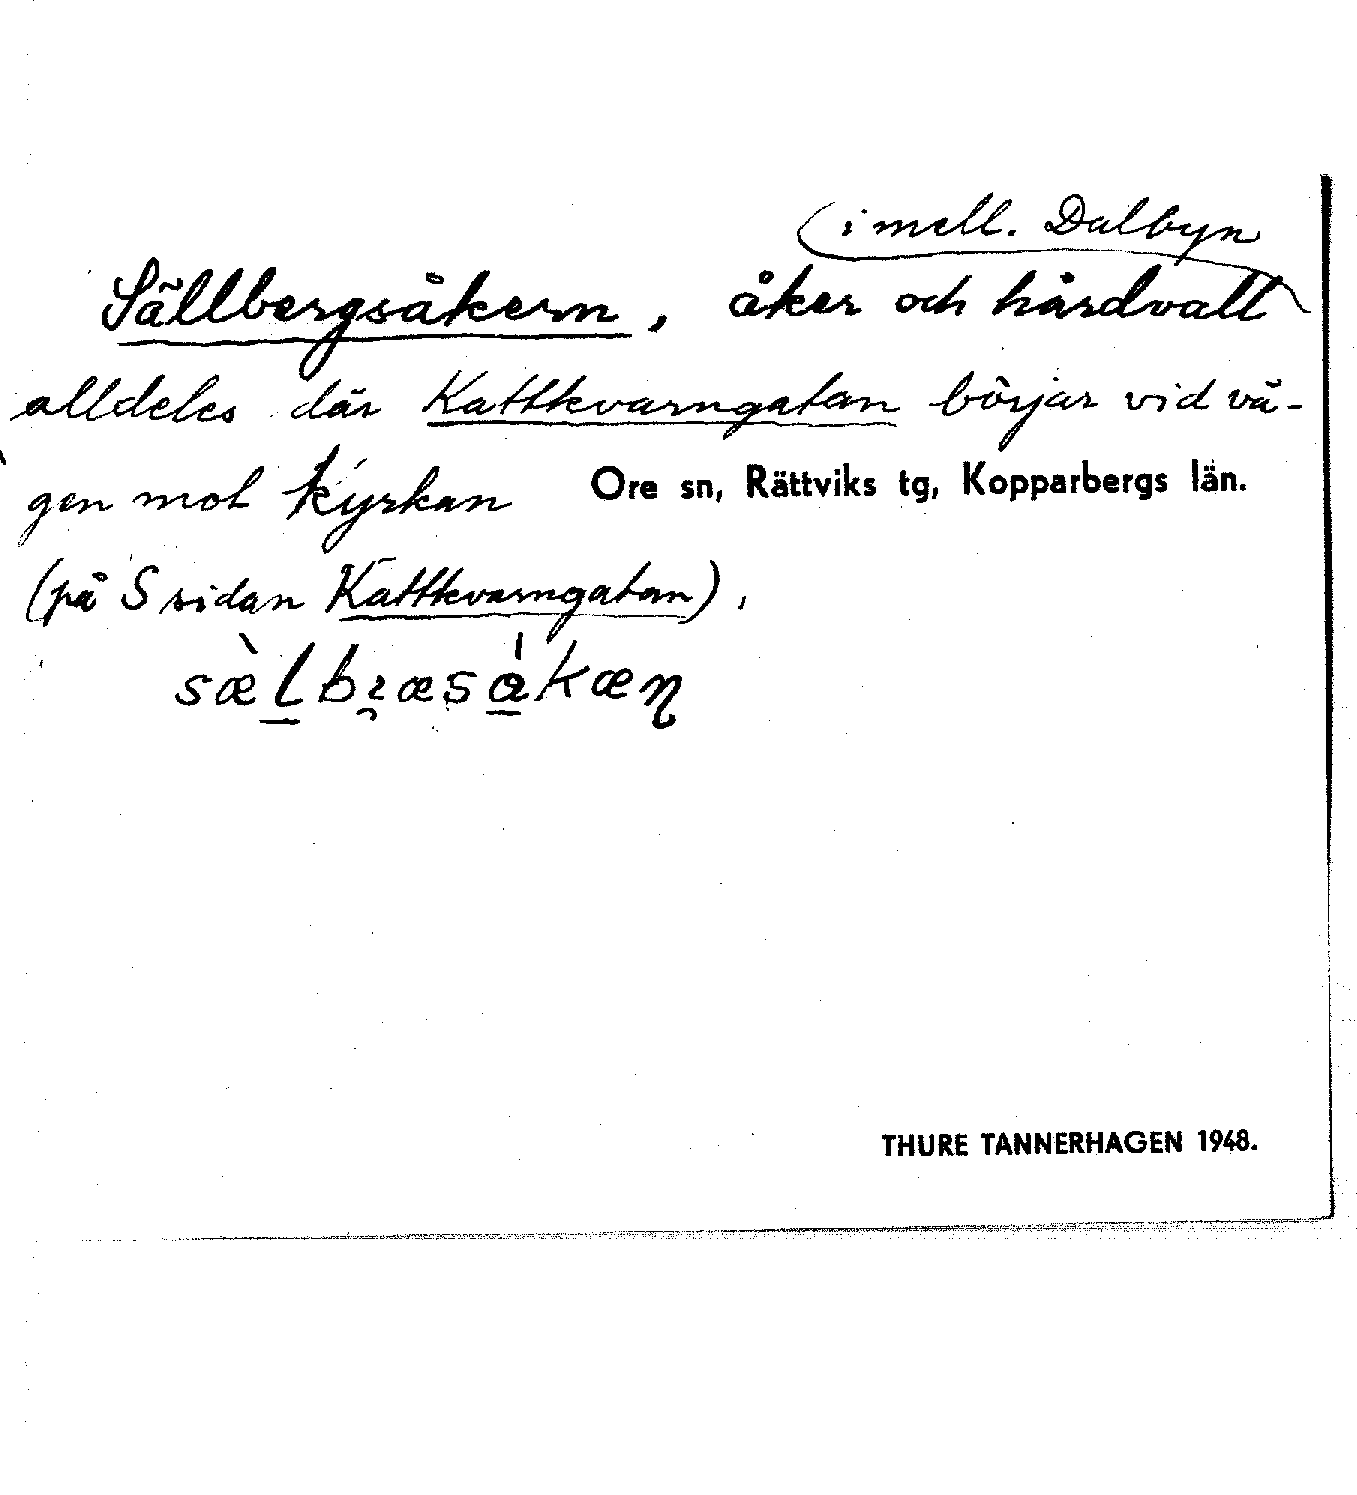 i mell. Dalbyn
Sällbergsåkern, åker och hårdvall
alldeles där Kattkvarngatan börjar vid vä-
gen mot kyrkan Ore sn, Rättviks tg, Kopparbergs län.
(på S sidan Kattkvarngatan).
THURE TANNERHAGEN 1948.